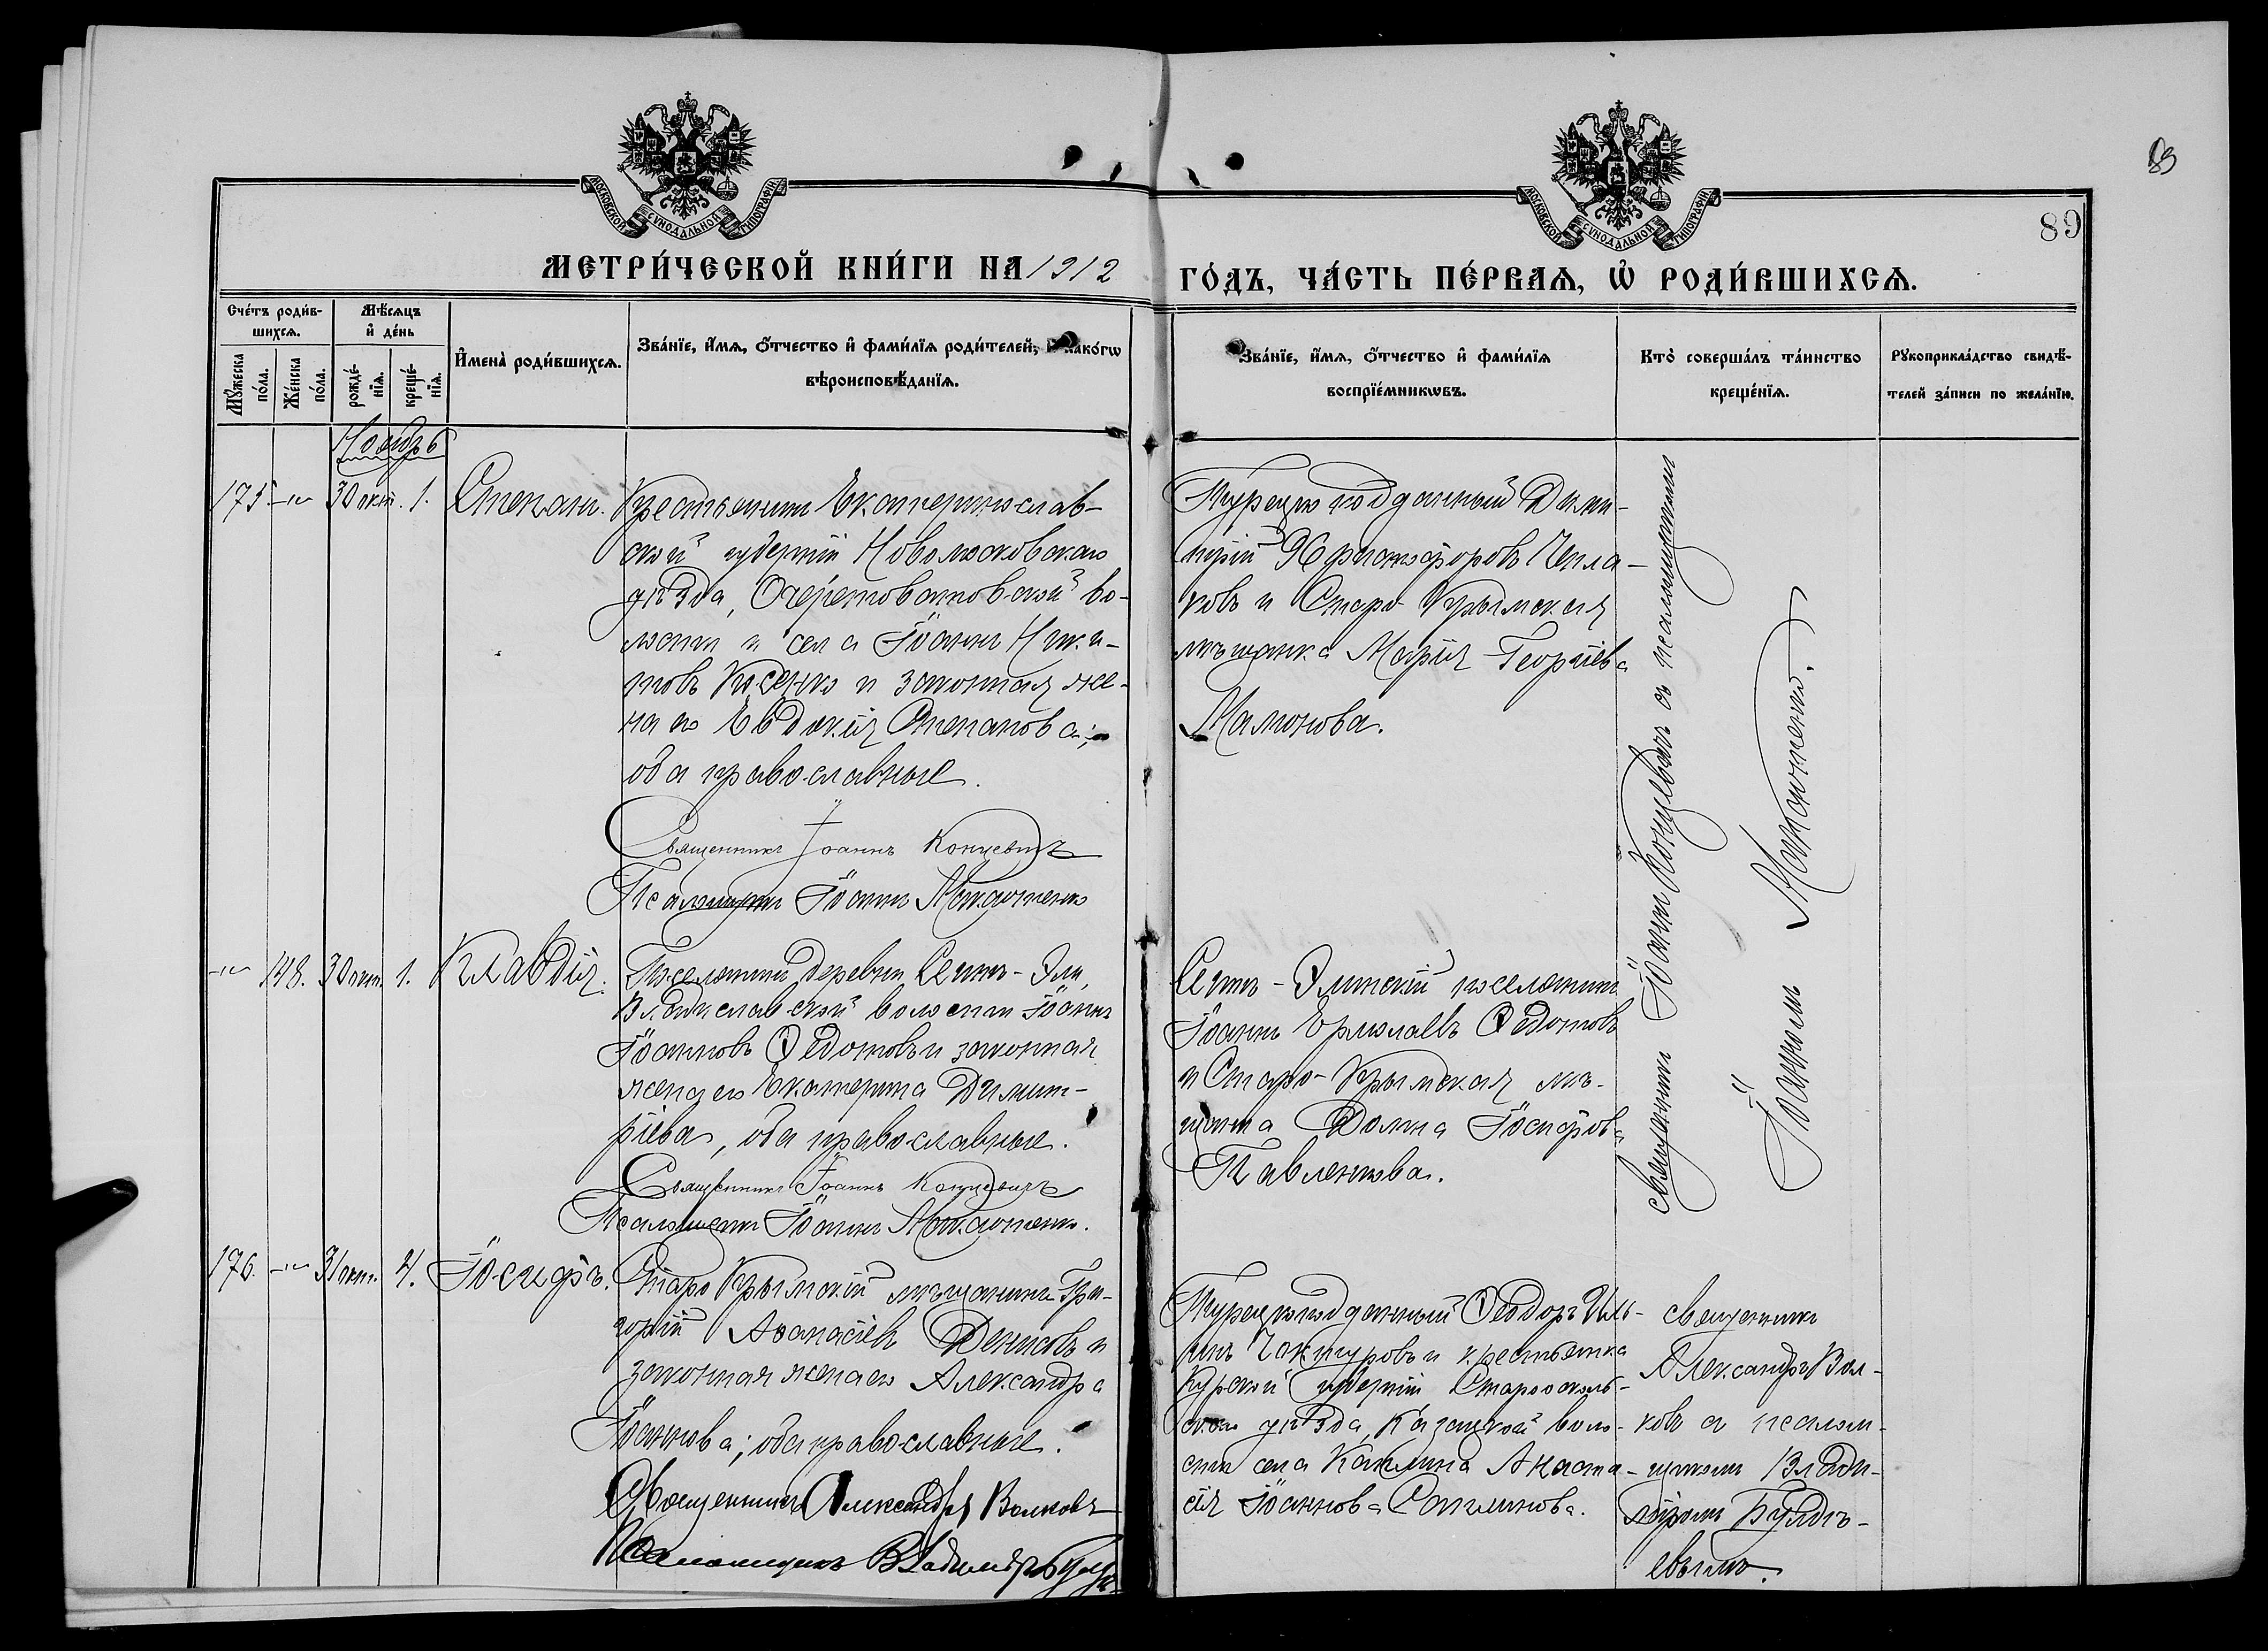 89
89
МОСКОВСКОЙ СУНОДАЛЬНОЙ ТИПОГРАФІИ
МОСКОВСКОЙ СУНОДАЛЬНОЙ ТИПОГРАФІИ
МЕТРИ́ЧЕСКОЙ КНИ́ГИ НА 1912
ГО́ДЪ, ЧА́СТЬ ПЕ́РВАЯ, Ѽ РОДИ́ВШИХСЯ.
Сче́тъ роди́в-
шихся.
Мѣ́сяцъ
и҆ де́нь
Мꙋ́жеска
по́ла.
Же́нска
по́ла.
рожде́-
нїя.
креще́-
нїя.
И҆мена̀ роди́вшихся.
Зва́нїе, и҆́мя, ѻ҆́тчество и҆ фами́лїя роди́телей, и҆ како́гѡ
вѣроисповѣ́данїя.
Зва́нїе, и҆́мя, ѻ҆́тчество и҆ фами́лїя
воспрїе́мникѡвъ.
Кто̀ соверша́лъ та́инство
креще́нїя.
Рꙋкоприкла́дство свидѣ́-
телей за́писи по жела́нїю.
Ноябрь
175 -"- 30 окт. 1. Степанъ.
Крестьянинъ Екатеринослав-
ской губерніи Новомосковскаго
уѣзда, Очеретоватовской во-
лости и села Іоаннъ Ники-
товъ Косенко и законная же-
на его Евдокія Степанова;
оба православные.
Священникъ Іоаннъ Концевичъ
Псаломщикъ Іоаннъ
Турецко подданный Дими-
трій Христофоровъ Чепла-
ковъ и Старо-Крымская
мѣщанка Марія Георгіева
Мамонова.
священникъ Іоаннъ Концевичъ съ псаломщикомъ
Іоанномъ
-"- 148. 30 окт. 1. Клавдія.
Поселянинъ деревни Сеитъ-Эли,
Владиславской волости Іоаннъ
Іоанновъ Ѳедотовъ и законная
жена его Екатерина Димит-
ріева, оба православные.
Священникъ Іоаннъ Концевичъ
Псаломщикъ Іоаннъ
Сеитъ-Элинскій поселянинъ
Іоаннъ Ермолаевъ Ѳедотовъ
и Старо-Крымская мѣ-
щанка Домна Іосифова
Павленкова.
176. -"- 31 окт. 4. Іосифъ.
Старо Крымскій мѣщанинъ Гри-
горій Аѳанасіевъ Денисовъ и
законная жена его Александра
Іоаннова; оба православные.
Священникъ Александръ Волковъ
Псаломщикъ Владиміръ
Турецкоподданный Ѳеодоръ Иль-
инъ Чакпуровъ и крестьянка
Курской губерніи Старооскол-
скаго уѣзда, Казацкой воло-
сти села Каплина Анаста-
сія Іоаннова Сотникова.
священникъ
Александръ Вол-
ковъ съ псалом-
щикомъ Влади-
міромъ Булды-
евымъ.